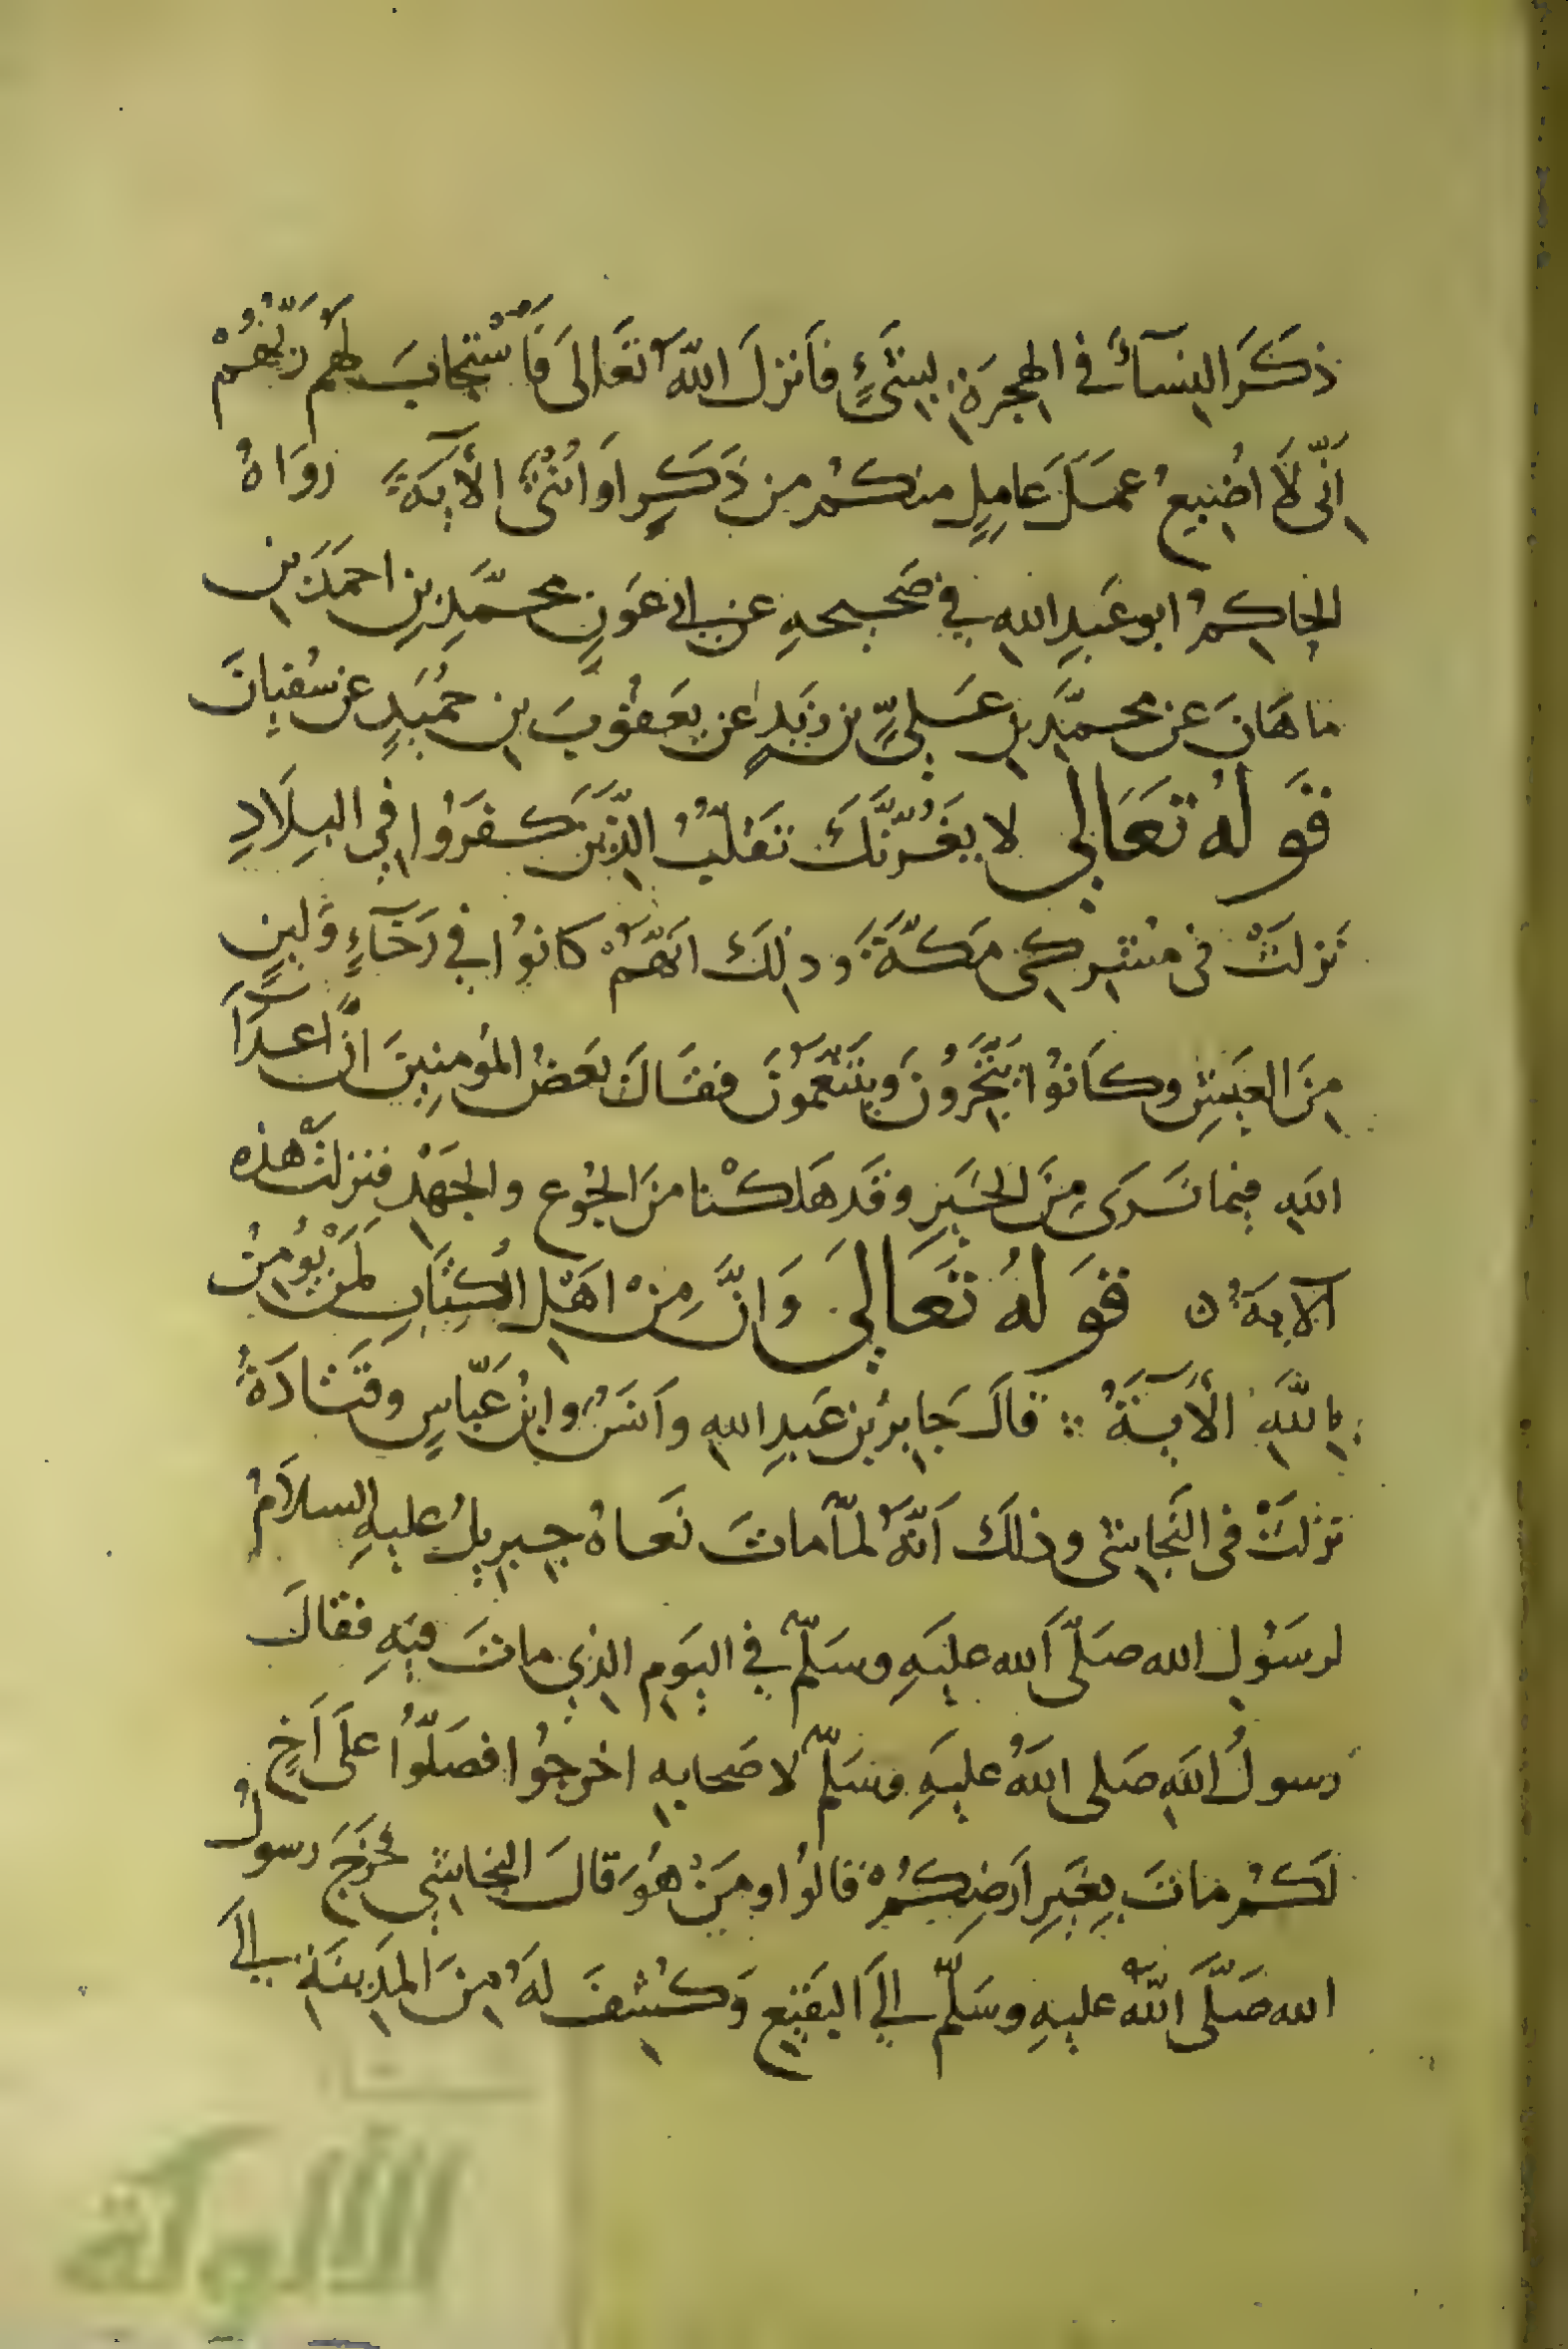 ذَكَرَ النِسَآءَ في الهِجرَةِ بِشَىْءٍ فَاَنزلَ اللّهُ تَعَالىَ فَاسْتَجَابَ لَهُم رَبُّهُمْ
اَنِّى لَا اُضِيعُ عمَلَ عَامِلٍ منكُم من ذَكَرٍ اَو اُنثَىٰ الْأٓيَةَ رَوَاهُ
الحاكِمُ ابو عَبدِ اللهِ في صَحيحهِ عن ابى عَونٍ محمّدِ بنِ احمَدَ بنِ
ماهَانَ عن محمّدِ بنِ عَلىِّ بن زَيدٍ عن يَعقُوبَ بنِ حُمَيدٍ عن سُفيانَ
قَولهُ تَعَالى لا يَغُرَّنَّكَ تَقَلُّبُ الذِّينَ كَفَرُوا فِي البِلَادِ
نَزلَتْ فى مُشرِكى مَكّةَ وذلِكَ انَهُّمْ كانوُا في رَخَآءٍ وَلينٍ
مِنَ العَيشِ وكَانوُا يَتَّجِرُونَ وَيَتَنَعَّمُونَ فقَالَ بَعضُ المؤمنِينَ انَّ اعدَآءَ
اللهِ فيما نَرَى مِنَ الخَيرِ وقَد هَلَكْنا منَ الجُوع والجَهْدِ فنزلَتْ هَذِه
الآيَةُ ن قَولهُ تَعَالىَ وَانَّ مِنْ اهَلِ الكِتَابِ لَمَنْ يُؤْمِنُ
بِاللّهِ الْأٓيَةُ ∴ قالَ جَابِرُ بن عَبدِ اللهِ واَنسٌ وابنُ عَبّاسٍ وقَتَادَةُ
نزلَتْ فى النَجاشِى وذلكَ اَنَّهُ لمّا ماتَ نَعاهُ جِبرِيلُ عليهِ السلَامُ
لرسَوُلِ الله صَلَّى الله عليَهِ وسَلّم في اليَومِ الذِي ماتَ فيَهِ فقالَ
رَسولُ اللهِ صَلى اللهُ عليَهِ وسَلّم لاصَحابهِ اخرجُوا فصَلّوُا علَى اَخٍ
لكُم ماتَ بِغَيرِ اَرضِكُمْ قالوُا ومَنْ هُوَ قالَ النجاشِي فخَرَجَ رسولُ
الله صَلَّى اللّهُ عليهِ وسَلّم الىَ البقَيِع وَكُشِفَ لهُ مِنَ المَدِينَةِ الىَ
الألوكة